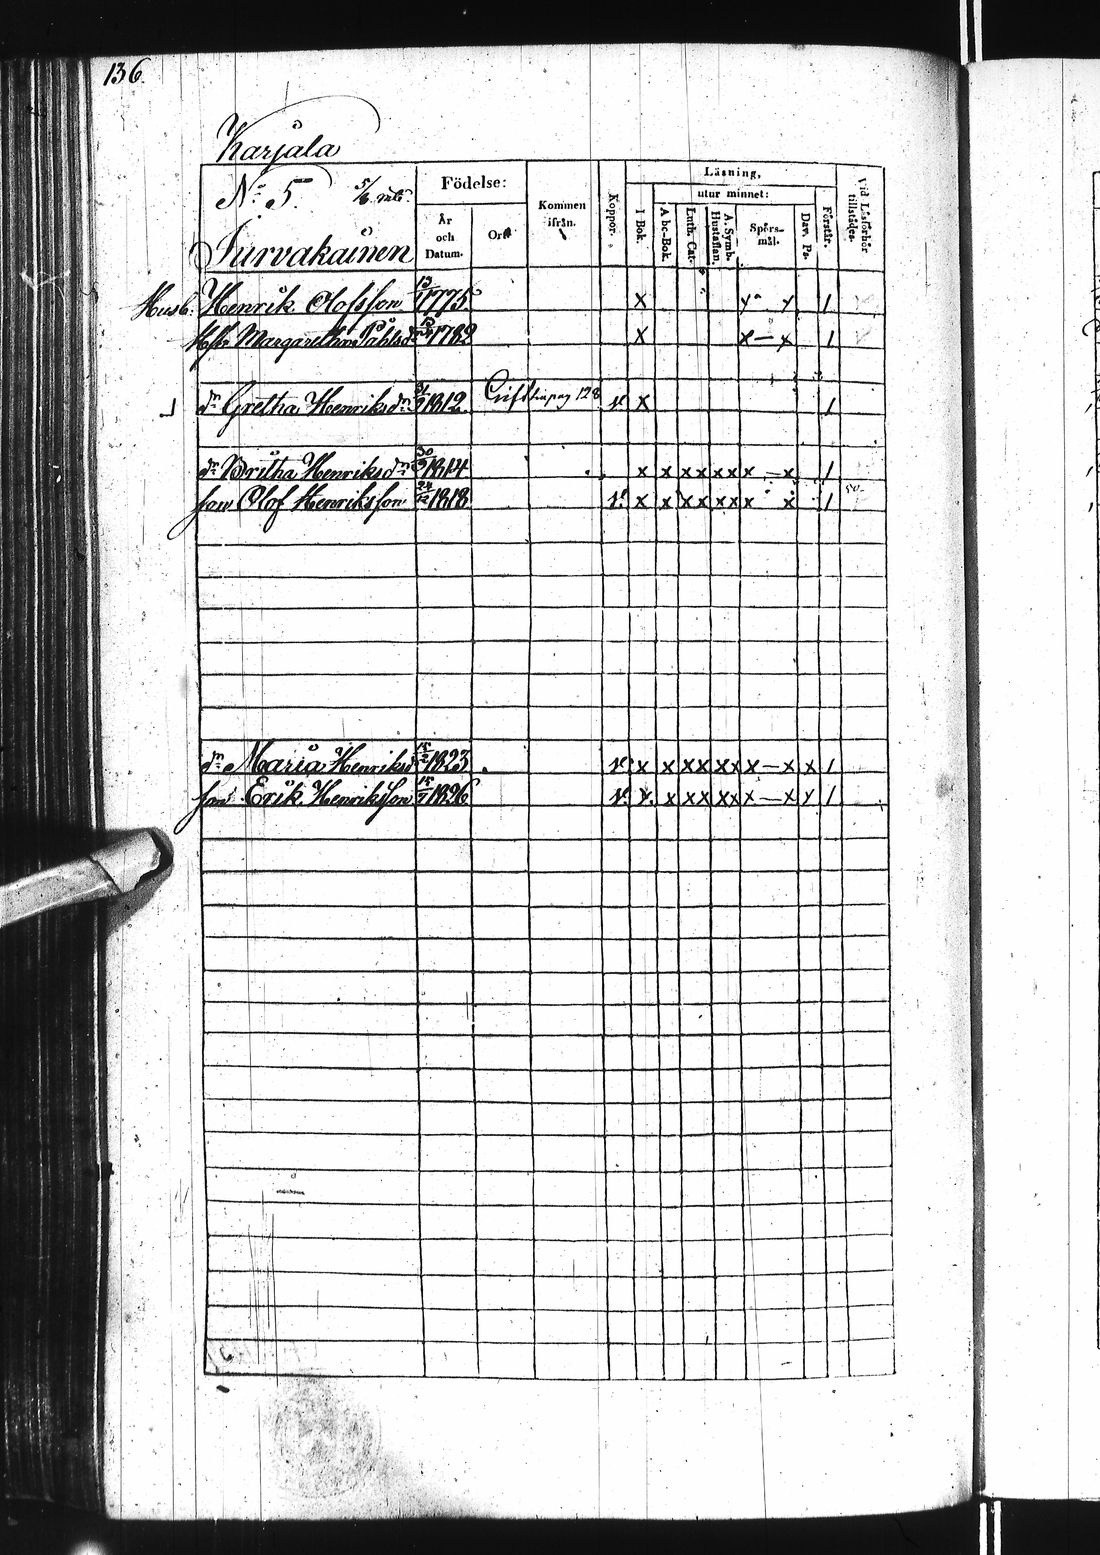 136.
Karjala
No 5. 5/6 mtl.
Survakainen
Födelse:
År och Datum.
Ort
Kommen ifrån.
Koppor.
Läsning,
utur minnet:
I Bok.
Abc-Bok.
Luth. Cat.
A. Symb. Hustaflan.
Spörsmål.
Dav. Ps.
Förstår.
Vid Läsförhör tillstädes.
Husb. Henrik Olofsson 1775 x x - x 1
Hst. Margaretha Påhlsdr 1782 x x — x 1
dr Gretha Henriksdr 1812 Gift pag 128 v x 1
dr Britha Henriksdr 30/9 1814 x x x x x x x — x 1
son Olof Henriksson 24/12 1818 v. x x x x x x x x 1
dr Maria Henriksd 15/2 1823 v x x x x x x x — x x 1
son Erik Henriksson 15/7 1826 v. x x x x x x x — x x 1